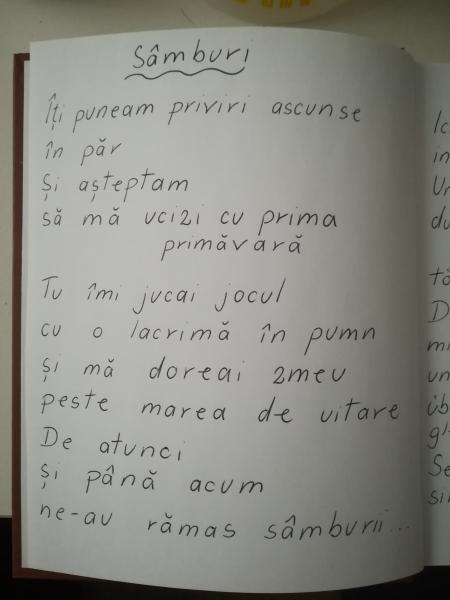 Sâmburi
Îți puneam priviri ascunse
în păr
Și așteptam
să mă ucizi cu prima
primăvară
Tu îmi jucai jocul
cu o lacrimă în pumn
și mă doreai zmeu
peste marea de uitare
De atunci
Și până acum
ne-au rămas sâmburii...